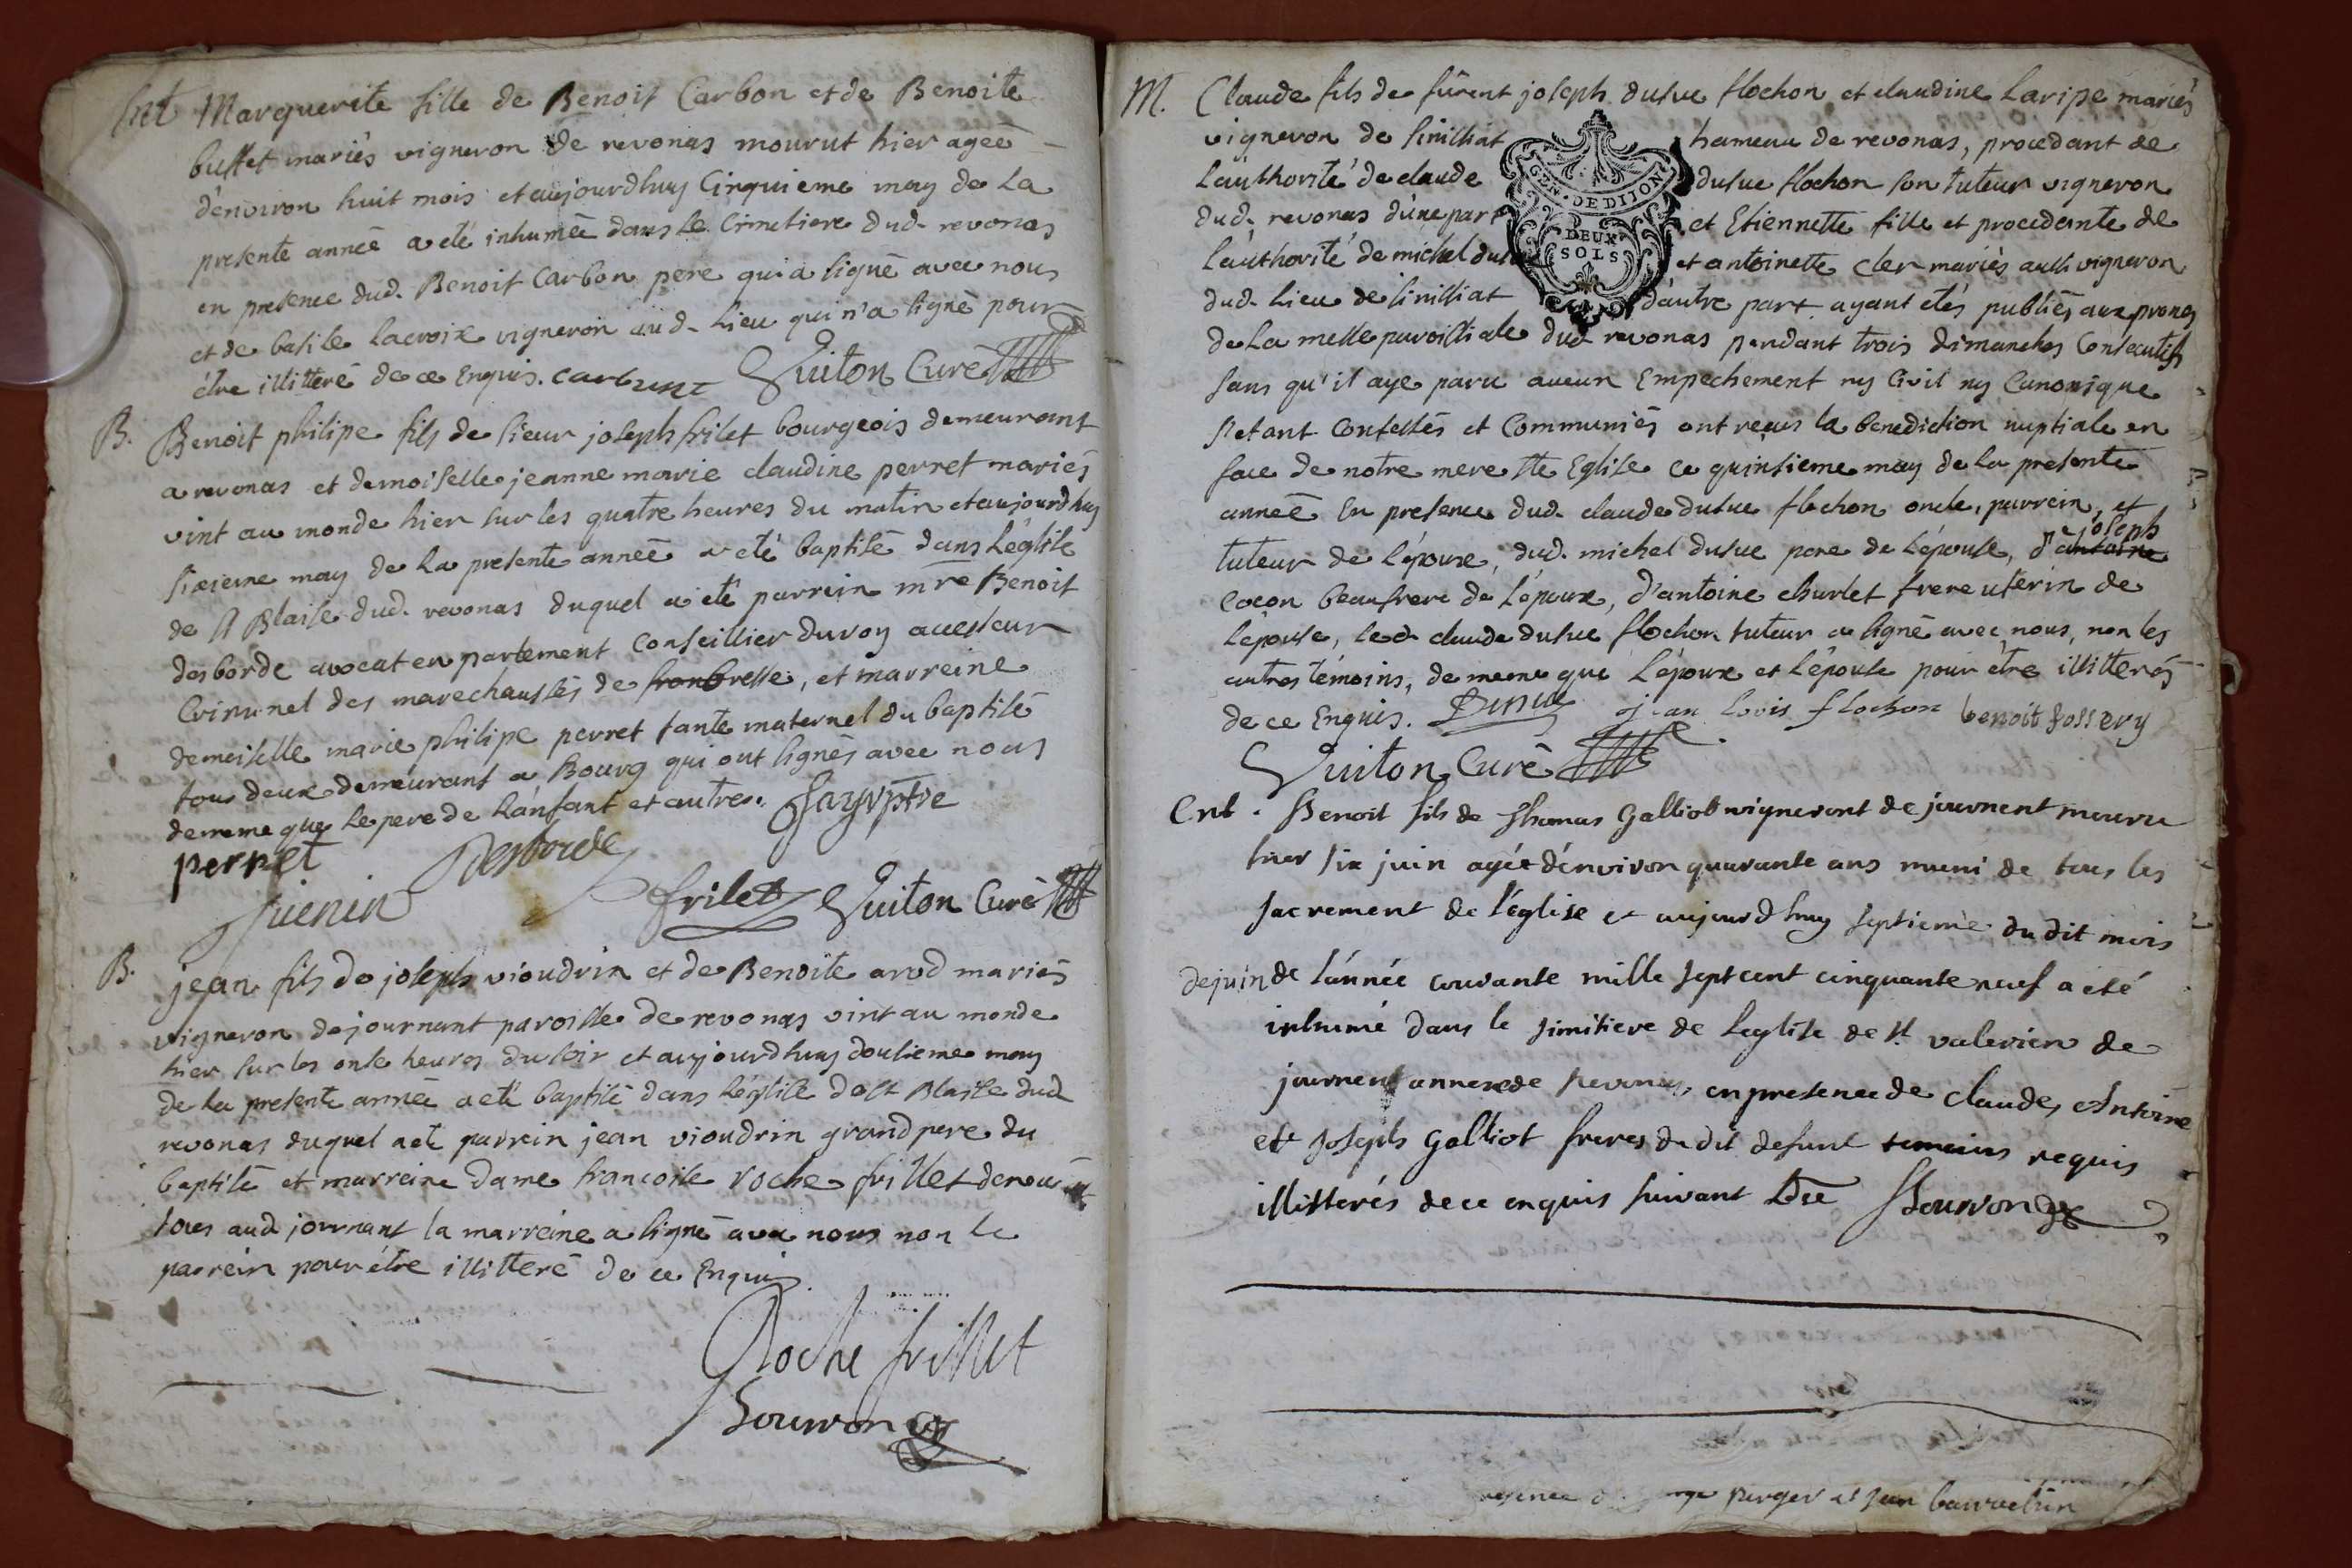 Ent Marguerite fille de Benoit Carbon et de Benoite
buffet mariés vigneron de revonas mourut hier ageé
d'environ huit mois et aujourdhuy Cinquieme may de La
presente anneé a eté inhumeé dans le Cimetiere dud. revonas
en presence dud. Benoit Carbon pere qui a signé avec nous
et de basile Lacroix vigneron aud. Lieu qui n'a signé pour
étre illitteré de ce Enquis. Carbunt Guiton Curé
B. Benoit philipe fils de sieur joseph frilet bourgeois demeurant
a revonas et demoiselle jeanne marie claudine perret mariés
vint au monde hier sur les quatre heures du matin et aujourdhuy
sixieme may de La presente anneé a eté baptisé dans L'église
de St Blaise dud. revonas duquel a eté parrein mre Benoit
desborde avocat en parlement Conseillier du roy accesseur
Criminel des marechaussés de bresse, et marreine
demoiselle marie philipe perret tante maternel du baptisé
tous deux demeurant a Bourg qui ont signés avec nous
de meme que Le pere de L'anfant et autres.
perret Desborde
frilet Guiton Curé
B. jean fils de joseph vioudrin et de Benoite arod mariés
vigneron de journant paroisse de revonas vint au monde
hier sur les onse heures du soir et aujourdhuy dousieme may
de La presente anneé a eté baptisé dans L'église de St Blaise dud
revonas duquel a eté parrein jean vioudrin grand pere du
baptisé et marreine dame francoise roche frillet
tous aud journant la marreine a signé avec nous non le
parrein pour étre illitteré de ce Enquis.
Roche frillet
Bouvron
M. Claude fils de fûrent joseph dusue flochon et claudine Laripe mariés
vigneron de sinissiat hameau de revonas, procedant de
L'authorité de claude dusue flochon son tuteur vigneron
dud. revonas d'une part et Etiennette fille et procedente de
L'authorité de michel dusue et antoinette cler mariés aussi vigneron
dud. Lieu de sinissiat d'autre part ayant etés publiés aux prones
de La messe paroissiale dud revonas pendant trois dimanches Consecutifs
sans qu'il aye paru aucun Empechement ny Civil ny Canonique
s'etant Confessés et Communiés ont reçus la benediction nuptiale en
face de notre mere ste Eglise ce quinsieme may de La presente
anneé En presence dud. claude dusue flochon oncle, parrein, et
tuteur de L'epoux, dud. michel dusue pere de L'epouse, de joseph
Cocon beaufrere de L'epoux, d'antoine churlet frere uterin de
L'epouse, led. claude dusue flochon tuteur a signé avec nous, non les
autres témoins, de meme que L'époux et L'épouse pour étre illitterés
de ce Enquis. Dusue jean louis flochon benoit fossery
Guiton Curé
Ent. Benoit fils de Thomas Galliot vigneront de journent mouru
hier six juin agée d'environ quarante ans muni de tous les
sacrement de l'église et aujourdhuy septieme du dit mois
de juin de l'année courante mille sept cent cinquante neuf a eté
inhumé dans le simitiere de l'eglise de St valerien de
journent annexe de revonas, en presence de claude, Antoine
et joseph Galliot freres du dit defunt temoins requis
illitterés de ce enquis suivant Bouvron
GEN. DE DIJON
DEUX
SOLS